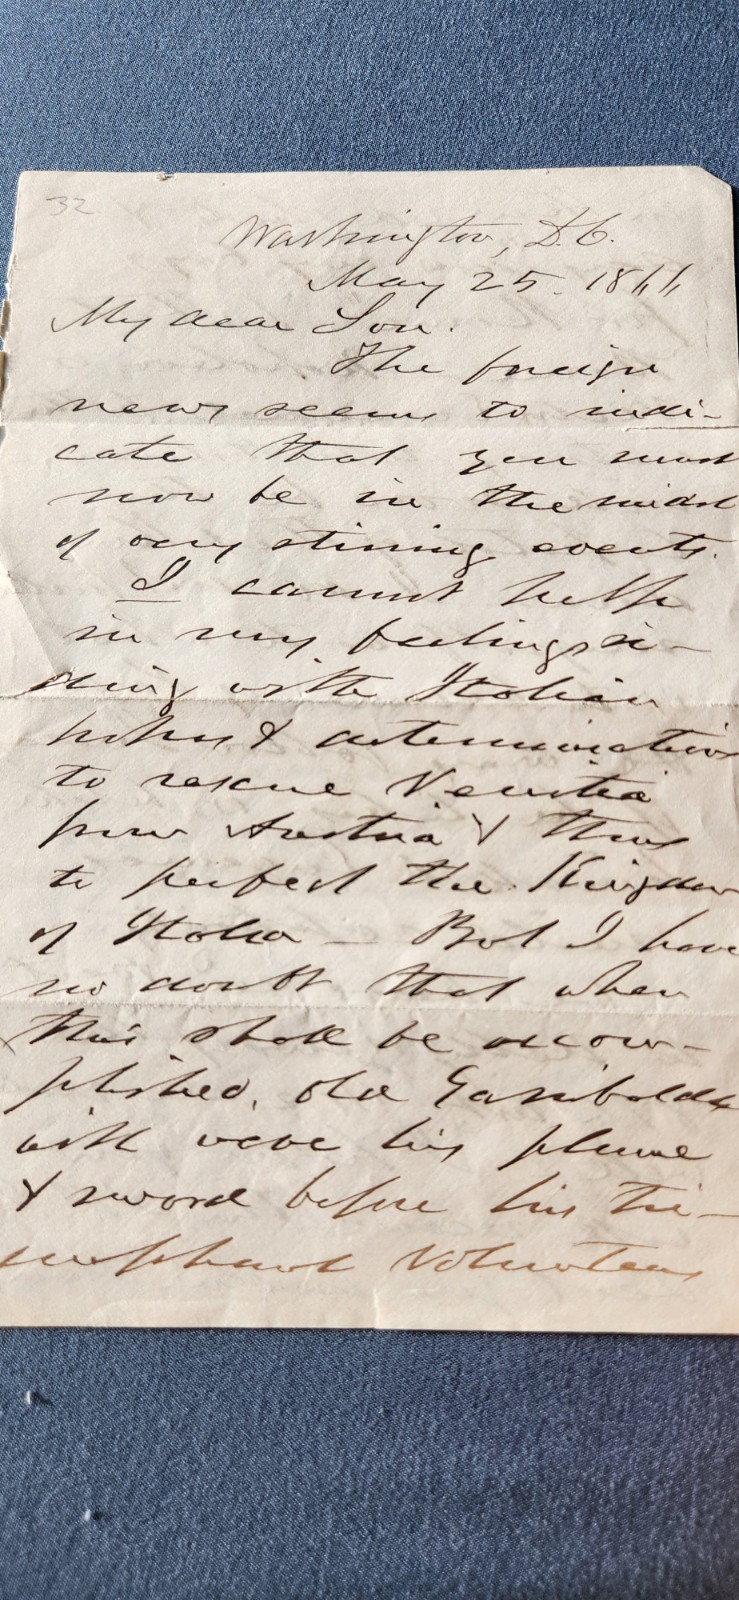 32
Washington, D.C.
May 25. 1866
My dear Son.
The foreign
news seems to indi-
cate that you must
now be in the midst
of very stirring events.
I cannot help
in my feelings si-
ding with Italian
& determination
to rescue Venitia
from Austria & thus
to perfect the Kingdom
of Italia - But I have
no doubt that when
this shall be accom-
plished, old Garibaldi
will wave his plume
& sword before his tri-
umphant Volunteers